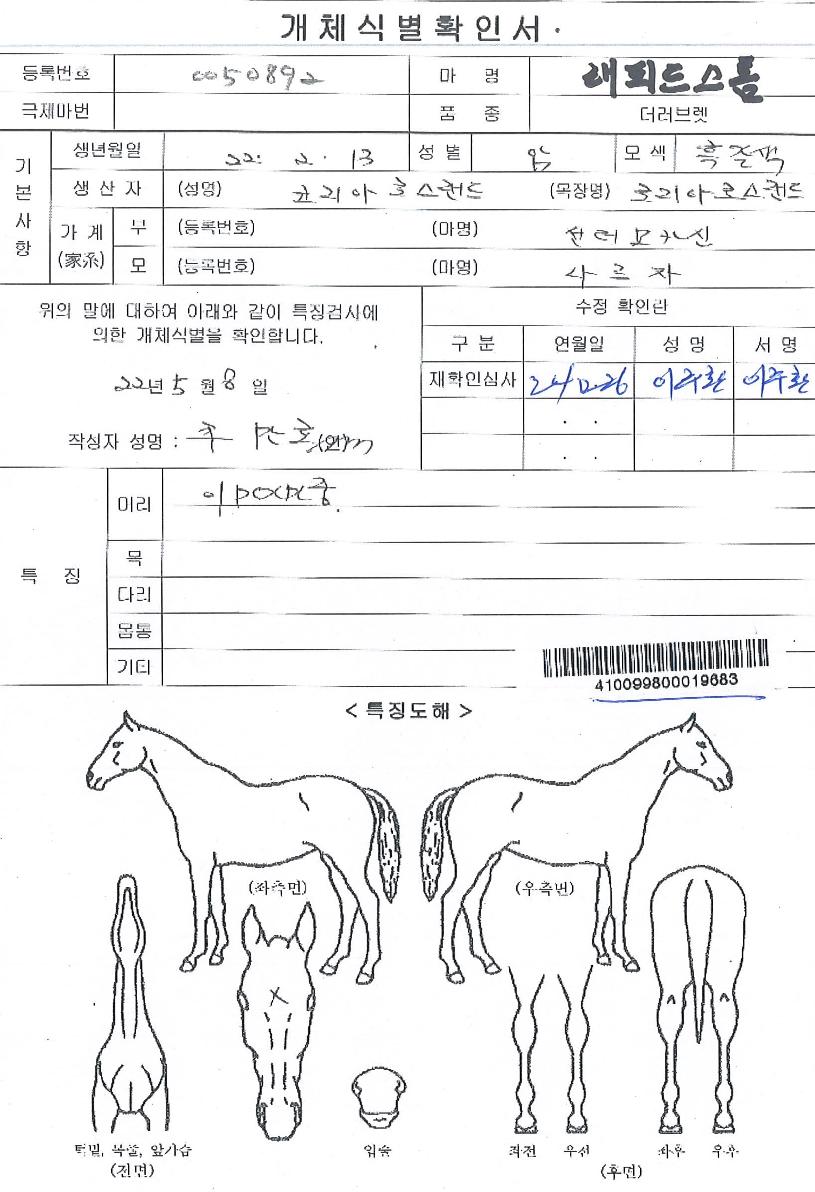 개체식별확인서
등록번호 0050892 마명 래피드스톰
국제마번 품종 더러브렛
기본사항 생년월일 22. 2. 13 성별 암 모색 흑갈색
생산자 (성명) 코리아호스랜드 (목장명) 코리아호스랜드
가계(家系) 부 (등록번호) (마명)
모 (등록번호) (마명) 사르자
위의 말에 대하여 아래와 같이 특징검사에
의한 개체식별을 확인합니다.
22년 5월 8일
작성자 성명 :
수정 확인란
구분 연월일 성명 서명
재확인심사 24 12. 26 이주환 이주환
특징 머리
목
다리
몸통
기타
410099800019683
< 특징도해 >
(좌측면) (우측면)
턱밑, 목줄, 앞가슴 입술 좌전 우전 좌후 우후
(전면) (후면)